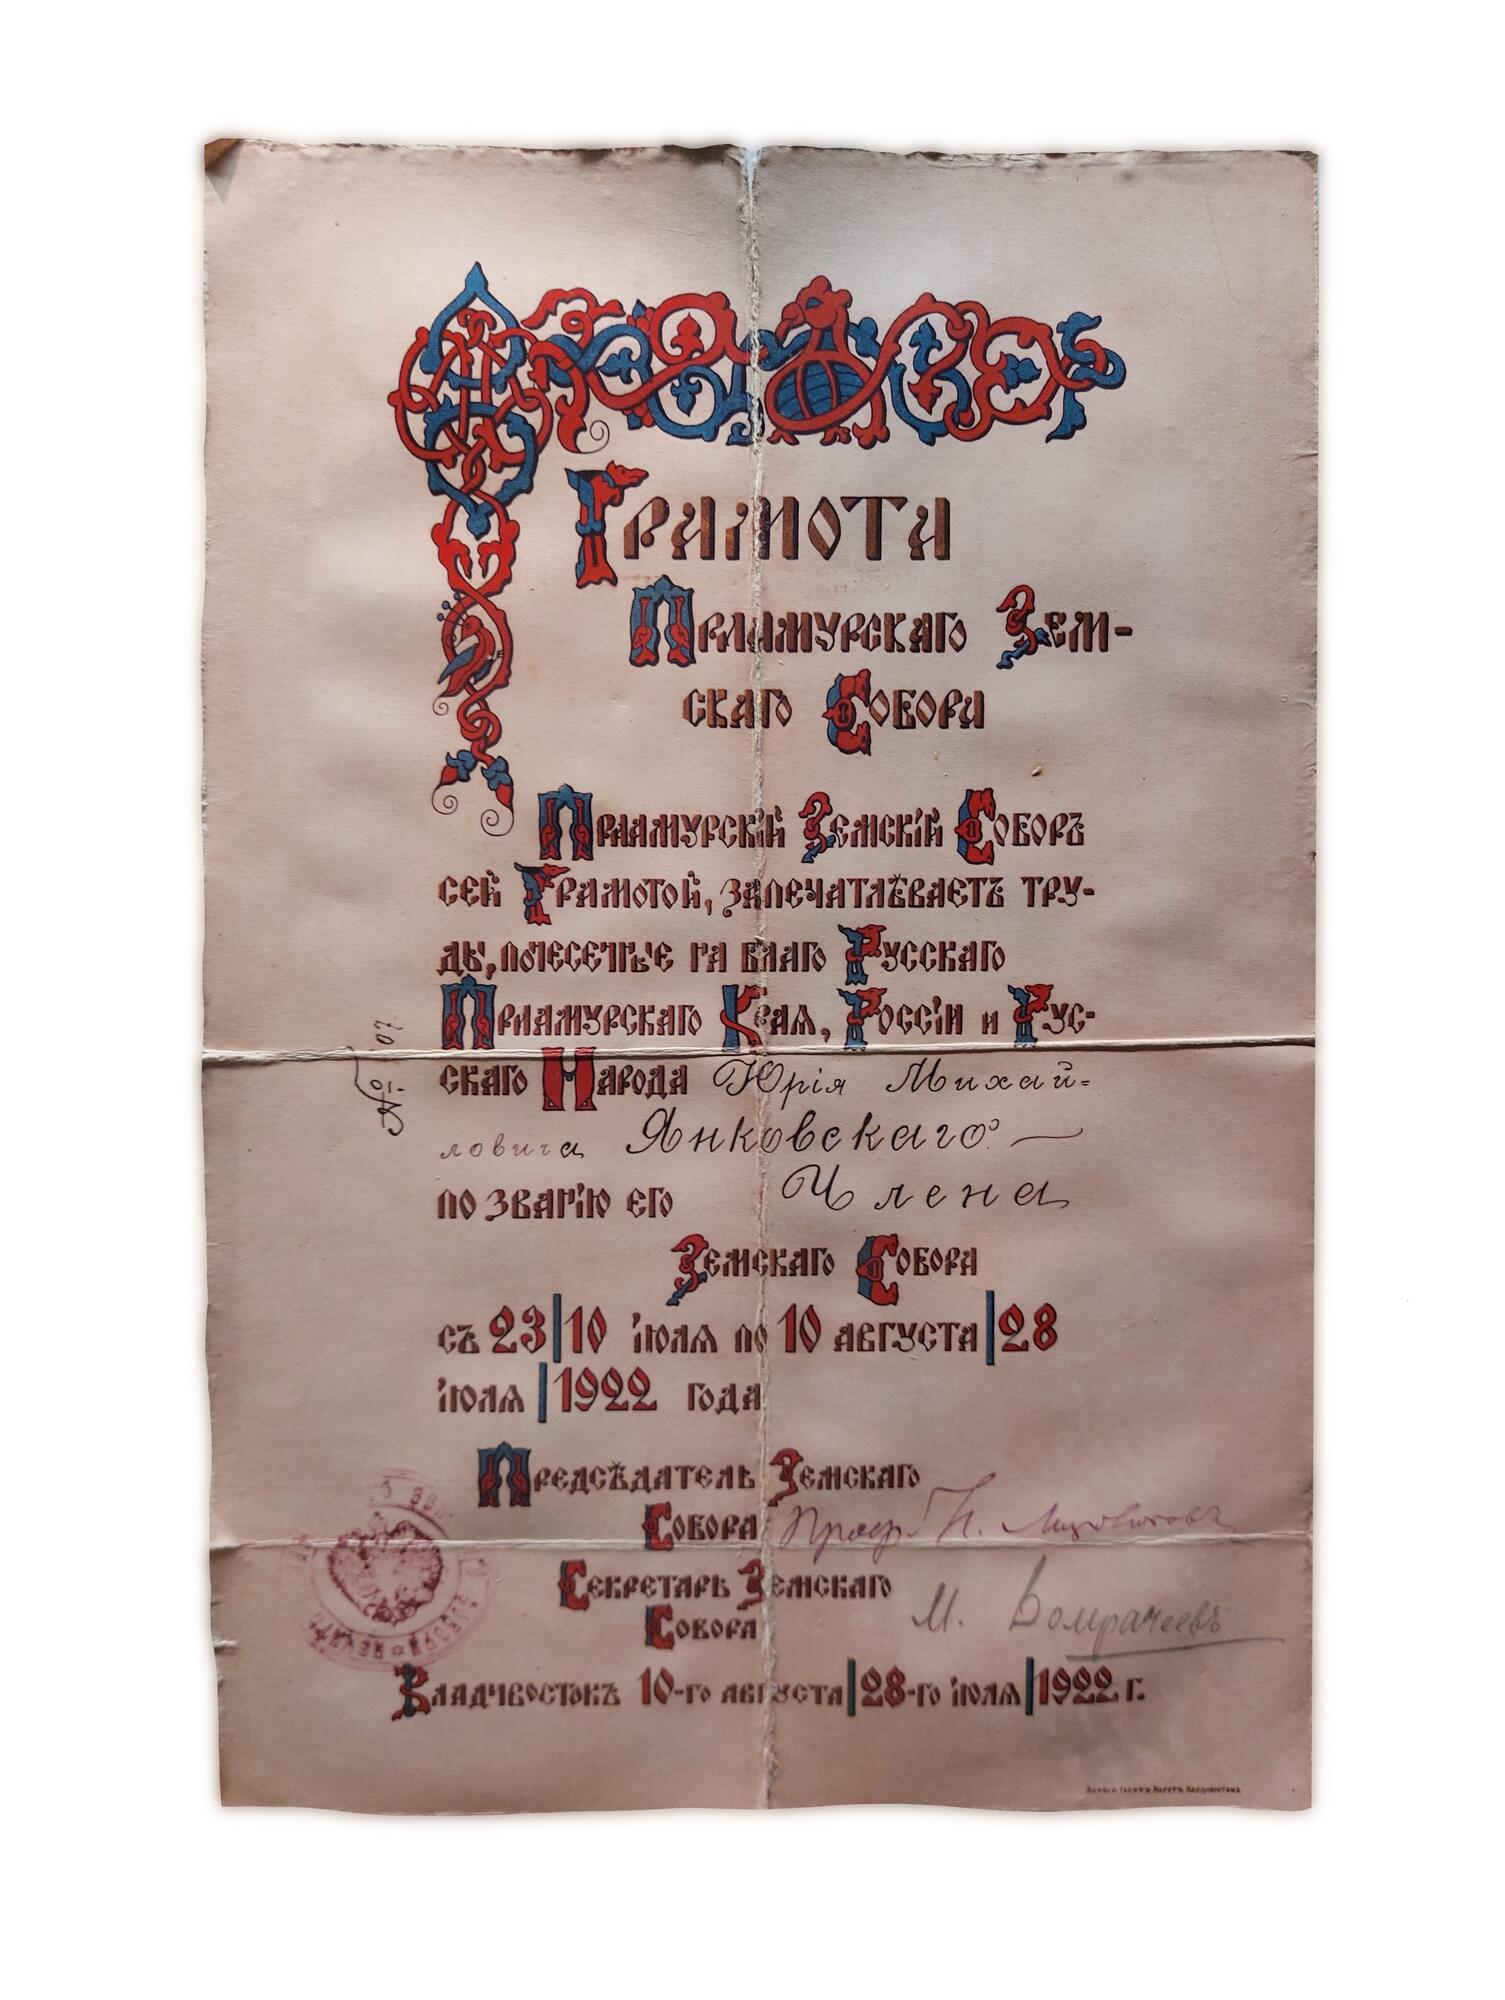 Грамота
Приамурскаго Зем-
скаго Собора
Приамурскій Земскій Соборъ
сей Грамотой, запечатлѣваетъ тру-
ды, понесенные на благо Русскаго
Приамурскаго Края, Россіи и Рус-
скаго Народа Юрія Михай-
ловича Янковскаго
по званію его Члена
Земскаго Собора
съ 23|10 іюля по 10 августа|28
іюля|1922 года
Предсѣдатель Земскаго
Собора Проф. Н.
Секретарь Земскаго
Собора М.
Владивостокъ 10-го августа|28-го іюля|1922 г.
№ 107.